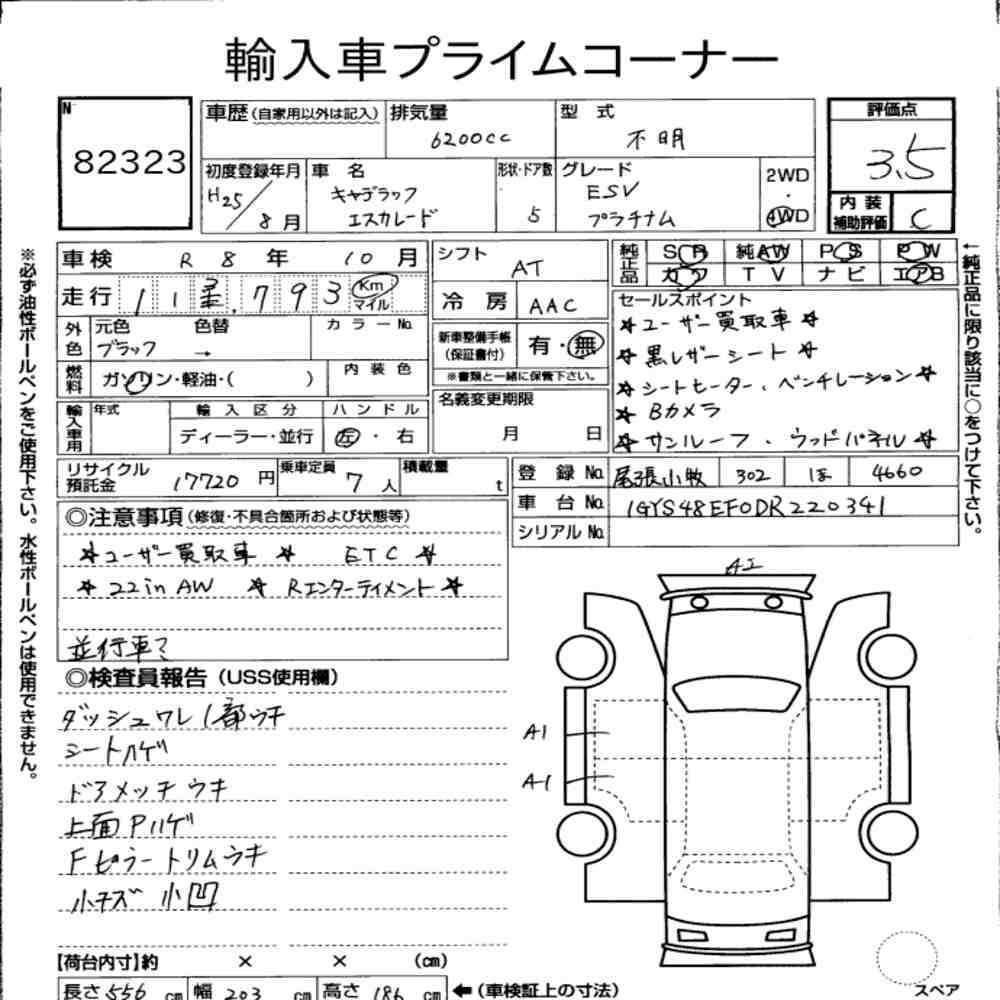 輸入車プライムコーナー
N
82323
車歴(自家用以外は記入) 排気量 6200cc 型式 不明
評価点 3.5
初度登録年月 H25/8月 車名 キャデラック エスカレード 形状・ドア数 5 グレード ESV プラチナム 2WD・4WD
内装補助評価 C
車検 R 8年 10月 シフト AT
純正品 SR 純AW PS PW
カワ TV ナビ エアB
走行 793 Km マイル 冷房 AAC
セールスポイント
★ユーザー買取車★
★黒レザーシート★
★シートヒーター、ベンチレーション★
★Bカメラ
★サンルーフ、ウッドパネル★
外色 元色 ブラック 色替 → カラーNo.
新車整備手帳(保証書付) 有・無
※書類と一緒に保管下さい。
燃料 ガソリン・軽油・( ) 内装色
名義変更期限 月 日
輸入車用 年式 輸入区分 ディーラー・並行 ハンドル 左・右
リサイクル預託金 17720円 乗車定員 7人 積載量 t
登録No. 尾張小牧 302 ほ 4660
車台No. 1GYS48EF0DR220341
シリアルNo.
◎注意事項(修復・不具合箇所および状態等)
★ユーザー買取車★ ETC★
★22inAW ★Rエンターテイメント★
並行車?
◎検査員報告(USS使用欄)
ダッシュワレ1部ウキ
シートハゲ
ドアメッキウキ
上面Pハゲ
Fピラートリムウキ
小キズ 小凹
A1
A1
【荷台内寸】約 × × (cm)
長さ556cm 幅203cm 高さ186cm ←(車検証上の寸法)
スペア
※必ず油性ボールペンをご使用下さい。水性ボールペンは使用できません。
←純正品に限り該当に○をつけて下さい。